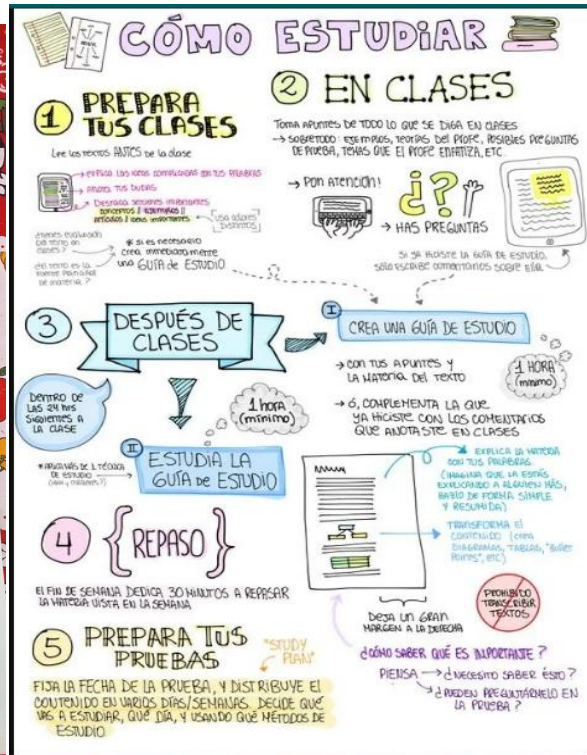 CÓMO ESTUDIAR
1 PREPARA
TUS CLASES
Lee los textos ANTES de la clase
→ explica las ideas complicadas con tus palabras
→ Anota tus dudas
→ Destaca secciones importantes
conceptos || ejemplos ||
artículos || ideas importantes
[usa colores
distintos]
¿tienes evaluación
del texto en
clases?
¿el texto es la
fuente principal
de materia?
* si es necesario
crea inmediatamente
una GUÍA de ESTUDIO
2 EN CLASES
Toma apuntes de TODO lo que se diga en clases
→ sobretodo: ejemplos, teorías del profe, posibles preguntas
de prueba, temas que el profe enfatiza, etc.
→ PON ATENCIÓN!
¿?
→ HAS PREGUNTAS
Si ya hiciste la guía de estudio,
sólo escribe comentarios sobre ella
3 DESPUÉS DE
CLASES
DENTRO DE
LAS 24 hrs
siguientes A
LA CLASE
I
CREA UNA GUÍA DE ESTUDIO
→ CON TUS APUNTES Y
LA MATERIA DEL TEXTO
→ ó, COMPLEMENTA LA QUE
YA HICISTE CON LOS COMENTARIOS
QUE ANOTASTE EN CLASES
1 HORA
(mínimo)
1 hora
(mínimo)
II
ESTUDIA LA
GUÍA de ESTUDIO
DE ESTUDIO
EXPLICA LA MATERIA
CON TUS PALABRAS.
(IMAGINA QUE LA ESTÁS
EXPLICANDO A ALGUIEN MÁS,
HAZLO DE FORMA SIMPLE
Y RESUMIDA)
TRANSFORMA EL
CONTENIDO (crea
DIAGRAMAS, TABLAS, "Bullet
Points", etc)
PROHIBIDO
TRANSCRIBIR
TEXTOS
DEJA UN GRAN
MARGEN A LA DERECHA
¿CÓMO SABER QUÉ ES IMPORTANTE?
PIENSA → ¿NECESITO SABER ÉSTO?
→ ¿PUEDEN PREGUNTÁRMELO EN
LA PRUEBA?
4 {REPASO}
EL FIN DE SEMANA DEDICA 30 MINUTOS A REPASAR
LA MATERIA VISTA EN LA SEMANA
5 PREPARA TUS
PRUEBAS
"STUDY
PLAN"
FIJA LA FECHA DE LA PRUEBA, Y DISTRIBUYE EL
CONTENIDO EN VARIOS DÍAS/SEMANAS. DECIDE QUÉ
VAS A ESTUDIAR, QUÉ DÍA, Y USANDO QUÉ MÉTODOS DE
ESTUDIO